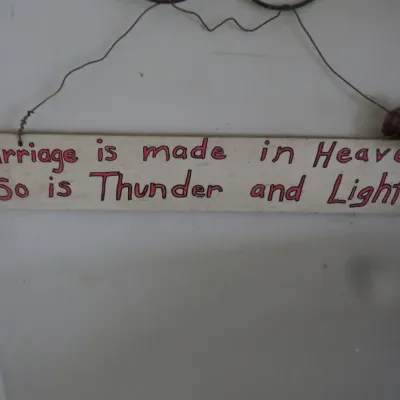 arriage is made in Heave
So is Thunder and Light